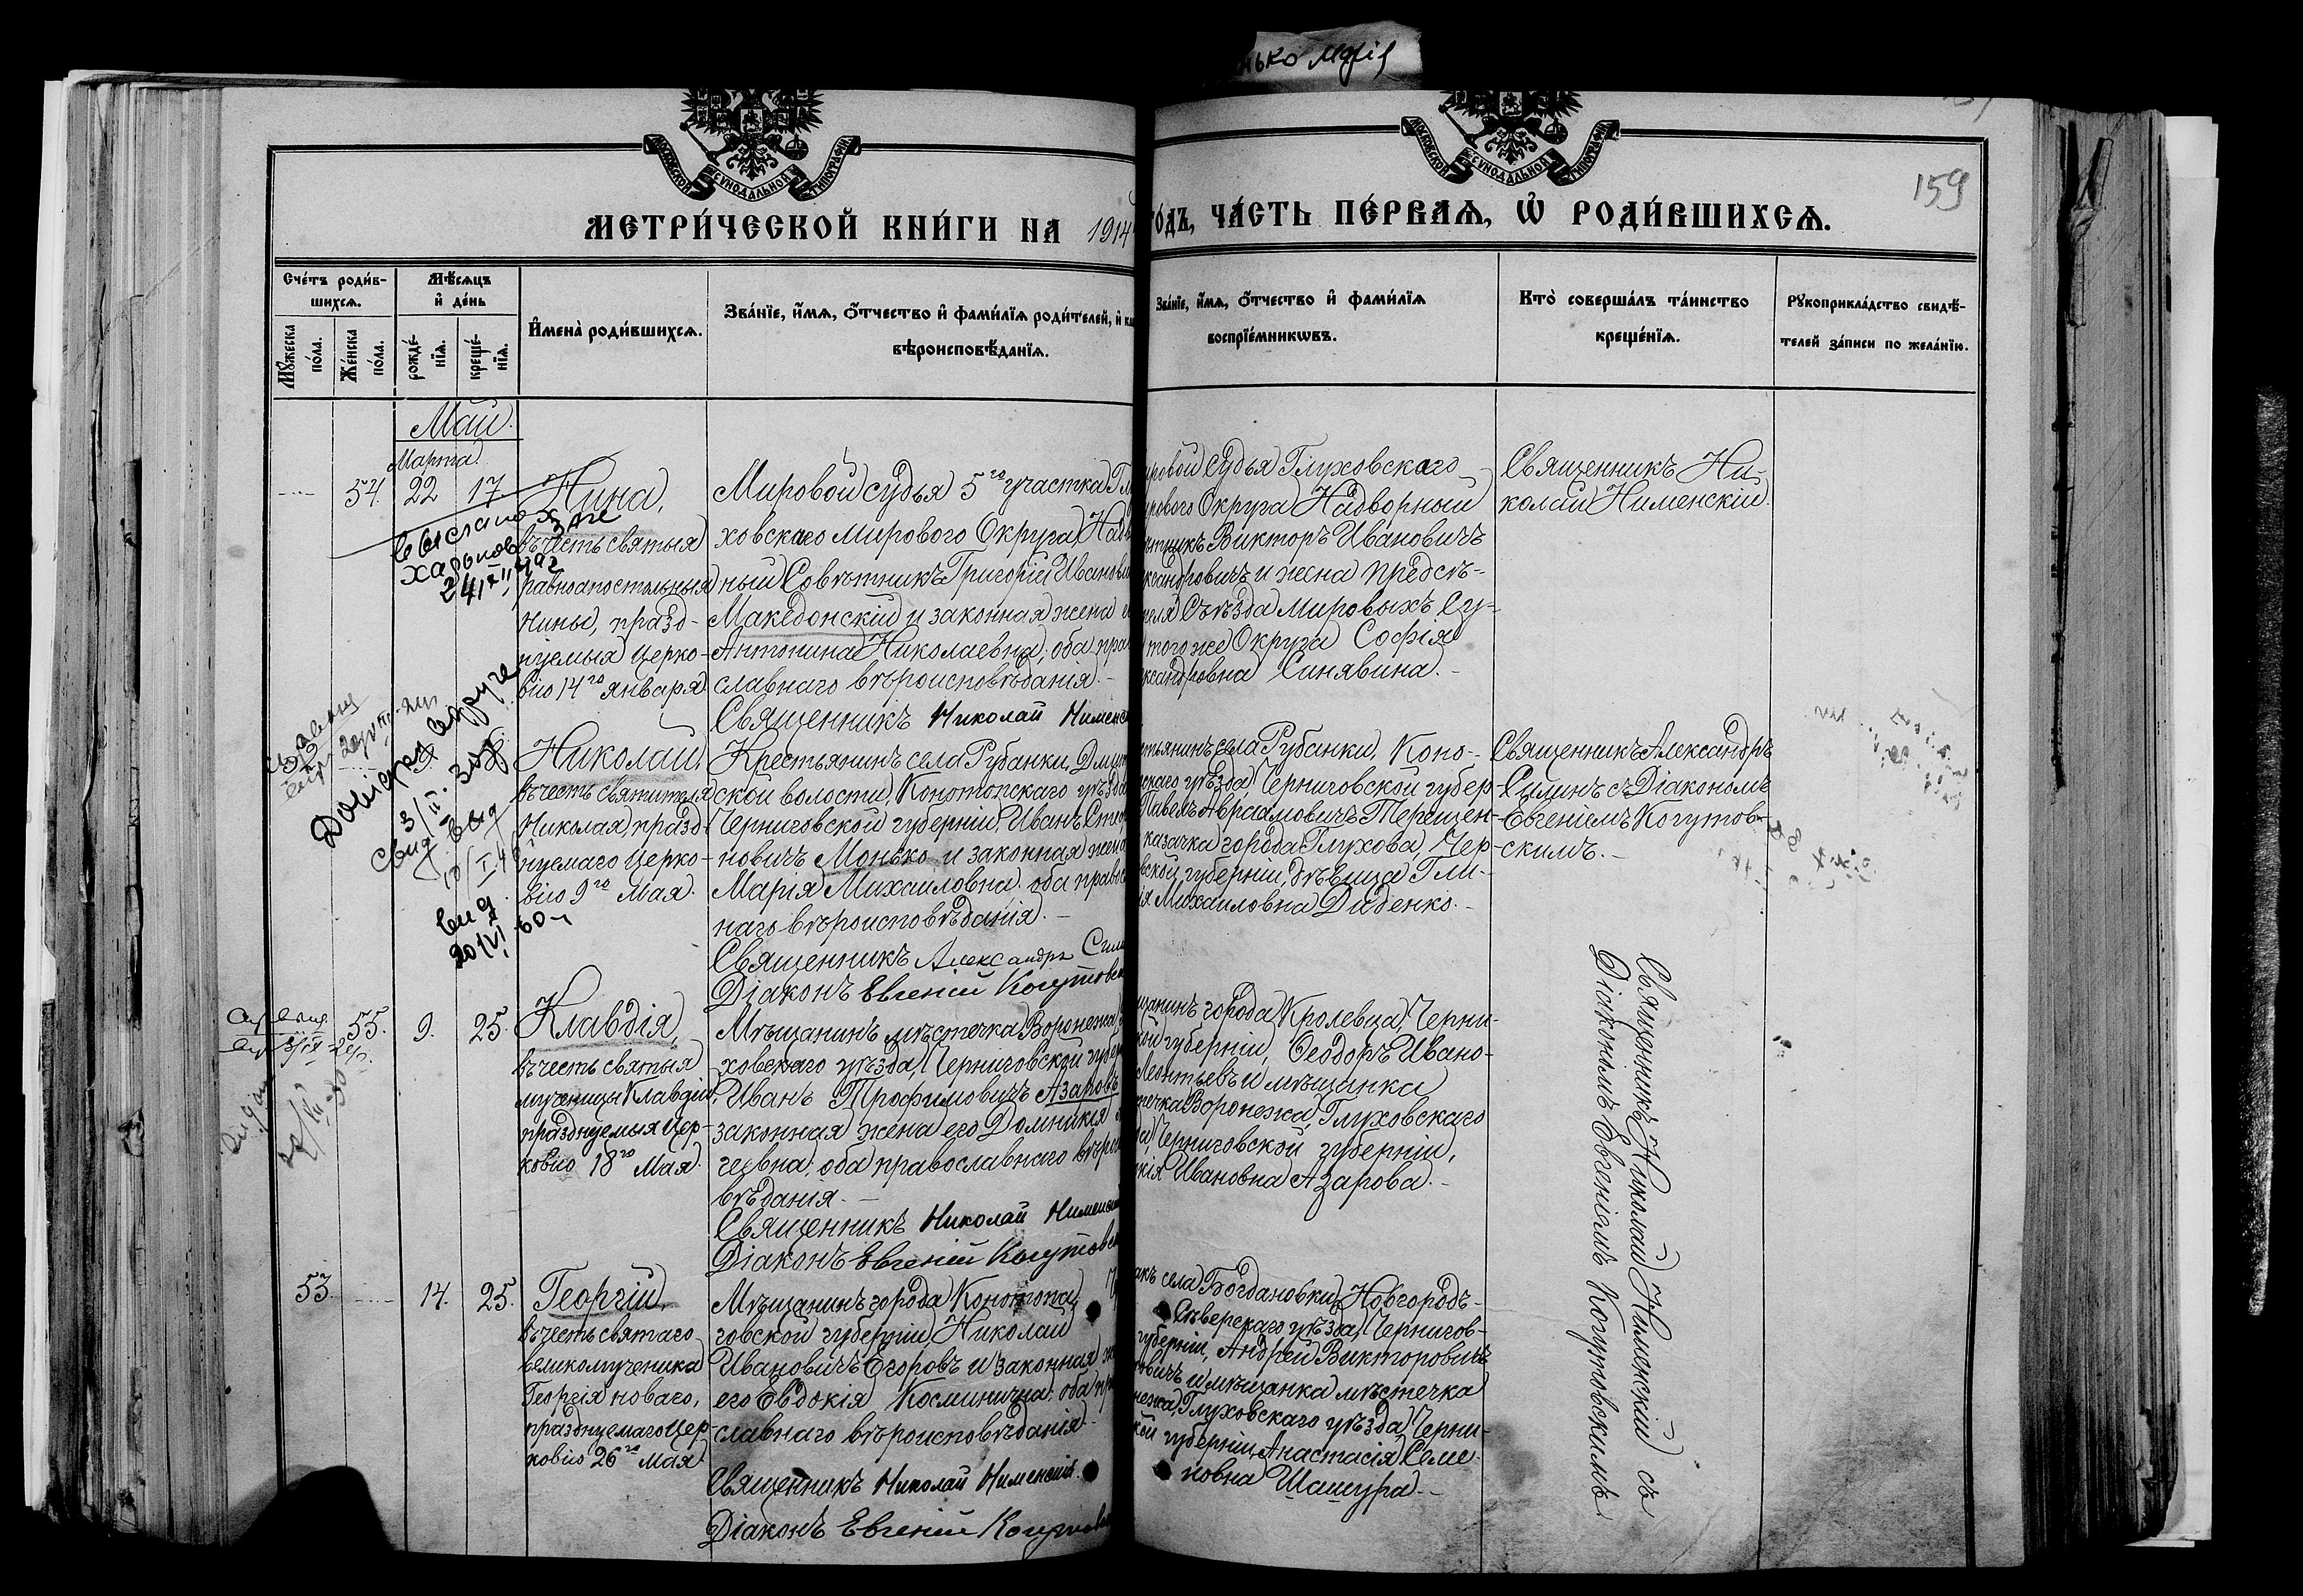 нько Марія
МОСКОВСКОЙ СѴНОДАЛЬНОЙ ТИПОГРАФІИ
МОСКОВСКОЙ СѴНОДАЛЬНОЙ ТИПОГРАФІИ
159
МЕТРИ́ЧЕСКОЙ КНИ́ГИ НА 1914
го́дъ, ЧА́СТЬ ПЕ́РВАѦ, Ѡ РОДИ́ВШИХСѦ.
Сче́тъ роди́в-
шихсѧ.
Мꙋ́жеска по́ла.
Же́нска по́ла.
Мѣ́сѧцъ
и҆ де́нь
рожде́-
нїѧ.
креще́-
нїѧ.
И҆мена̀ роди́вшихсѧ.
Зва́нїе, и҆́мѧ, ѻ҆́тчество и҆ фами́лїѧ роди́телей, и҆ как
вѣроисповѣ́данїѧ.
Зва́нїе, и҆́мѧ, ѻ҆́тчество и҆ фами́лїѧ
воспрїе́мникѡвъ.
Кто̀ соверша́лъ та́инство
креще́нїѧ.
Рꙋкоприкла́дство свидѣ́-
телей за́писи по жела́нїю.
Май.
Марта
54. 22 17
Нина,
въ честь святыя
равноапостольныя
Нины, празд-
нуемыя Церко-
вію 14го января
Мировой судья 5го участка Глу
ховскаго Мирового Округа, Надв
ный Совѣтникъ Григорій Иванови
Македонскій и законная жена е
Антонина Николаевна, оба пра
славнаго вѣроисповѣданія.
Священникъ Николай Нименс
ировой Судья Глуховскаго
ирового Округа Надворный
ѣтникъ Викторъ Ивановичъ
ксандровичъ и жена предсѣ-
теля Съѣзда Мировыхъ Су-
того же Округа Софія
ександровна Синявина.
Священникъ Ни-
колай Нименскій.
выслано
Харьков
52
9.
Николай,
въ честь святителя
Николая, празд-
нуемаго Церко-
вію 9го Мая.
Крестьянинъ села Рубанки, Дми
ской волости, Конотопскаго уѣзда
Черниговской губерніи, Иванъ Степ
новичъ Монько и законная жена
Марія Михаиловна, оба правос
наго вѣроисповѣданія.
Священникъ Александръ Сили
Діаконъ Евгеній Когутовск
стьянинъ села Рубанки, Коно-
скаго уѣзда, Черниговской губер-
Павелъ Авраамовичъ Терещен-
казачка города Глухова, Чер-
вской губерніи, дѣвица Гли-
ія Михаиловна Диденко.
Священникъ Александръ
Силинъ съ Діакономъ
Евгеніемъ Когутов-
скимъ.
55. 9. 25.
Клавдія,
въ честь святыя
мученицы Клавдіи,
празднуемыя Цер-
ковію 18го Мая.
Мѣщанинъ мѣстечка Воронежа,
ховскаго уѣзда, Черниговской губер
Иванъ Трофимовичъ Азаровъ
законная жена его Домникія
геевна, оба православнаго вѣроис
вѣданія.
Священникъ Николай Нименскій
Діаконъ Евгеній Когутовск
щанинъ города Кролевца, Черни-
кой губерніи, Ѳеодоръ Ивано-
Леонтьевъ и мѣщанка
течка Воронежа, Глуховскаго
да, Черниговской губерніи,
кія Ивановна Азарова.
53. 14. 25.
Георгій,
въ честь святаго
великомученика
Георгія новаго,
празднуемаго Цер-
ковію 26го Мая.
Мѣщанинъ города Конотопа,
говской губерніи, Николай
Ивановичъ Егоровъ и законная же
его Евдокія Косминична, оба пр
славнаго вѣроисповѣданія.
Священникъ Николай Нименскій.
Діаконъ Евгеній Когутовск
акъ села Богдановки, Новгородъ-
Сѣверскаго уѣзда, Чернигов-
губерніи, Андрей Викторовичъ
овичъ и мѣщанка мѣстечка
нежа, Глуховскаго уѣзда, Черни-
кой губерніи, Анастасія Семе-
новна Шашура.
Священникъ Николай Нименскій съ
Діакономъ Евгеніемъ Когутовскимъ